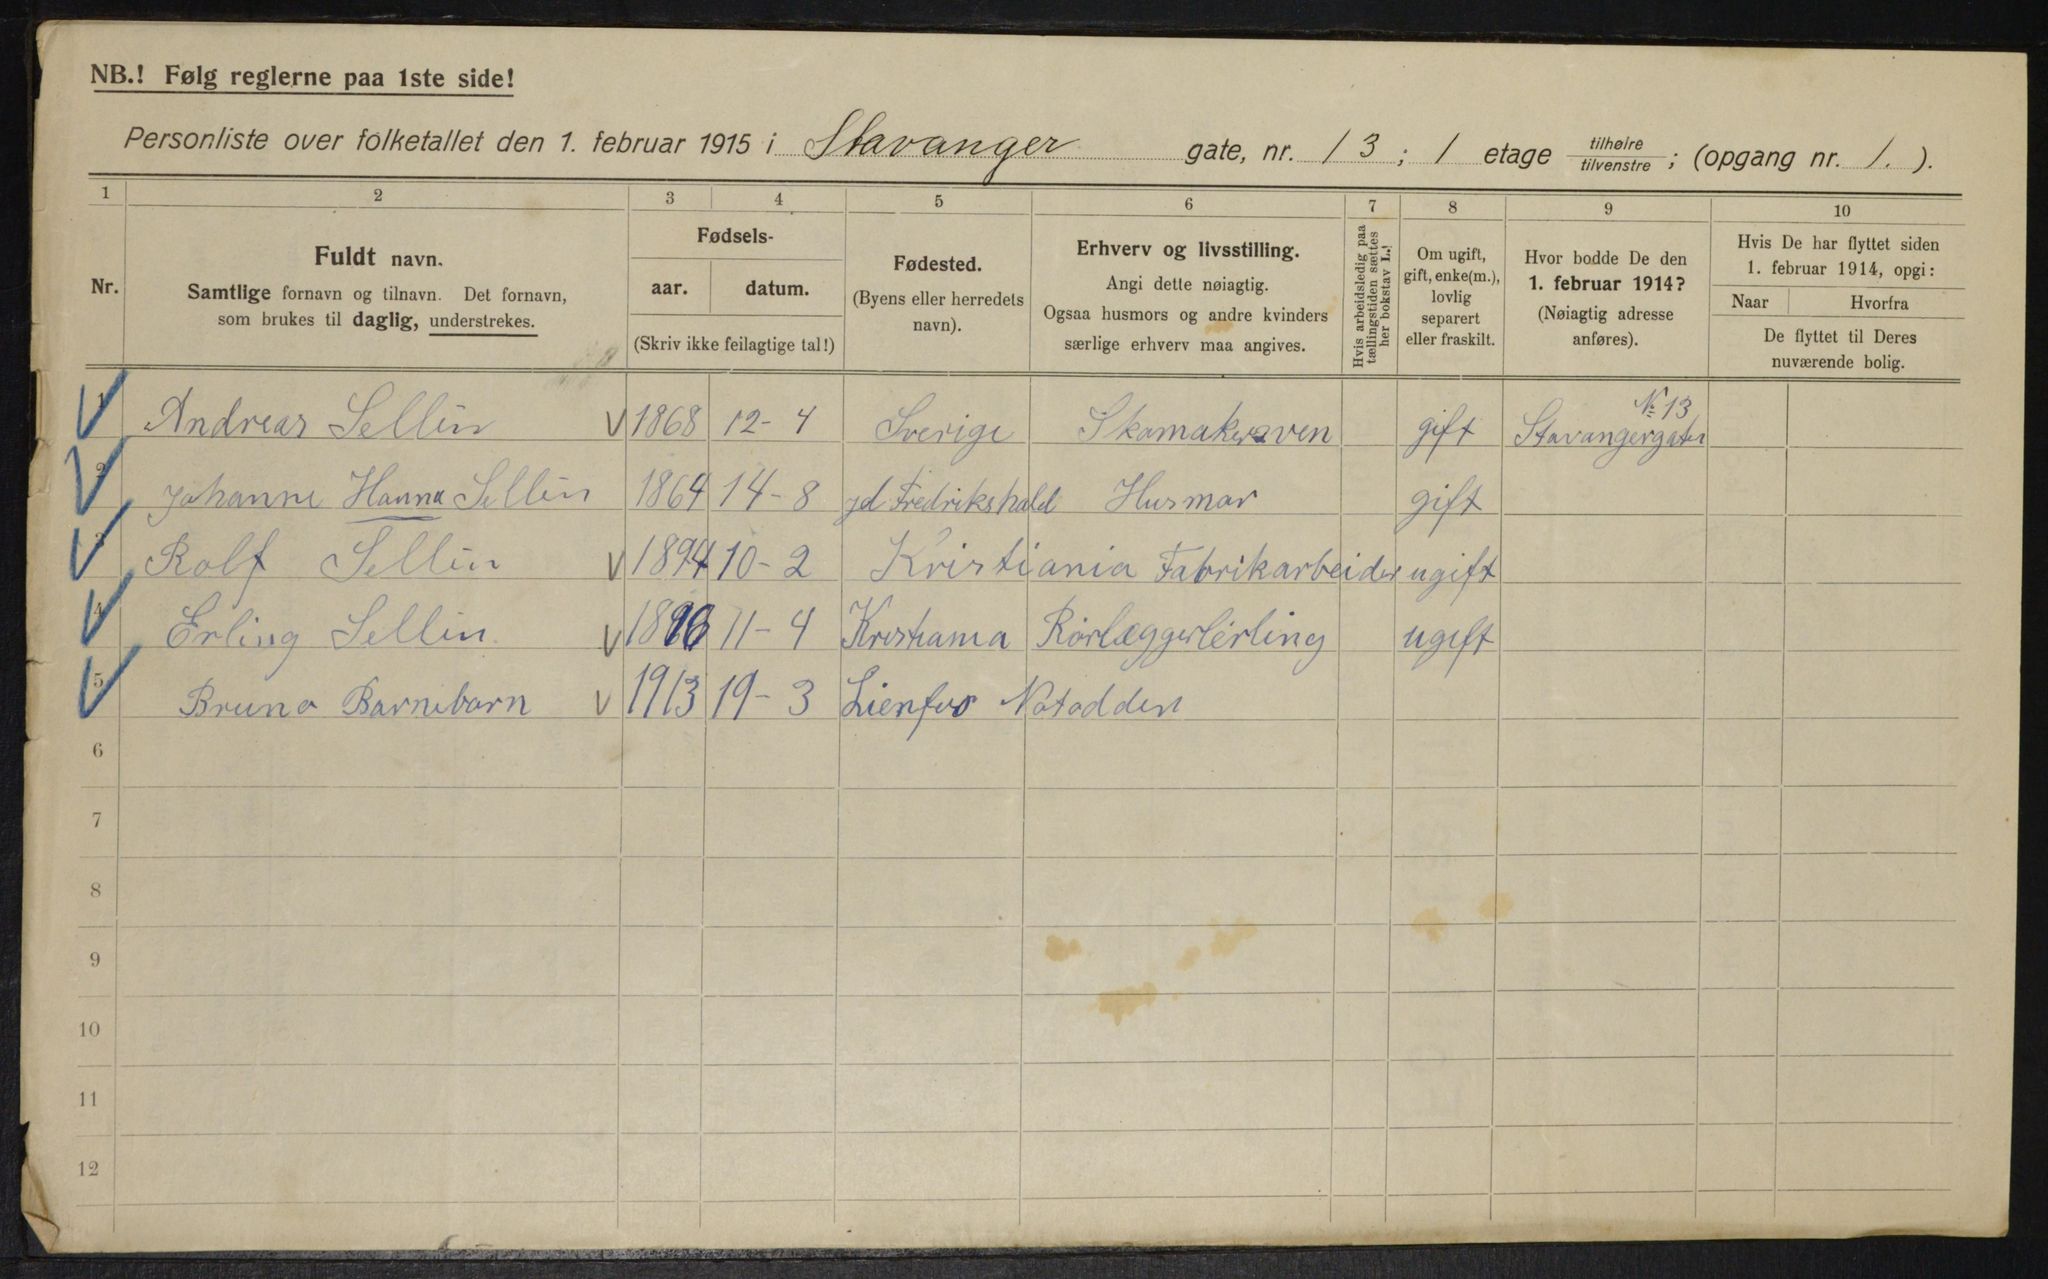 NB.! Følg reglerne paa 1ste side!
Personliste over folketallet den 1. februar 1915 i Stavanger gate, nr. 13; 1 etage tilhøire tilvenstre; (opgang nr. 1.).
1 2 3 4 5 6 7 8 9 10
Nr.
Fuldt navn.
Samtlige fornavn og tilnavn. Det fornavn,
som brukes til daglig, understrekes.
Fødsels-
aar. datum.
(Skriv ikke feilagtige tal!)
Fødested.
(Byens eller herredets
navn).
Erhverv og livsstilling.
Angi dette nøiagtig.
Ogsaa husmors og andre kvinders
særlige erhverv maa angives.
Hvis arbeidsledig paa
tællingstiden sættes
her bokstav L.!
Om ugift,
gift, enke(m.),
lovlig
separert
eller fraskilt.
Hvor bodde De den
1. februar 1914?
(Nøiagtig adresse
anføres).
Hvis De har flyttet siden
1. februar 1914, opgi:
Naar Hvorfra
De flyttet til Deres
nuværende bolig.
1 Andreas Sellin 1868 12-4 Sverige gift Stavangergaten № 13
2 Johanne Hanna Sellin 1864 14-8 Fredrikshald Husmor gift
3 Rolf Sellin 1894 10-2 Kristiania Fabrikarbeider ugift
4 Erling Sellin 11-4 Kristiania Rörlæggerlérling ugift
5 Bruno Barnebarn 1913 19-3 Lienfos Notodden
6
7
8
9
10
11
12